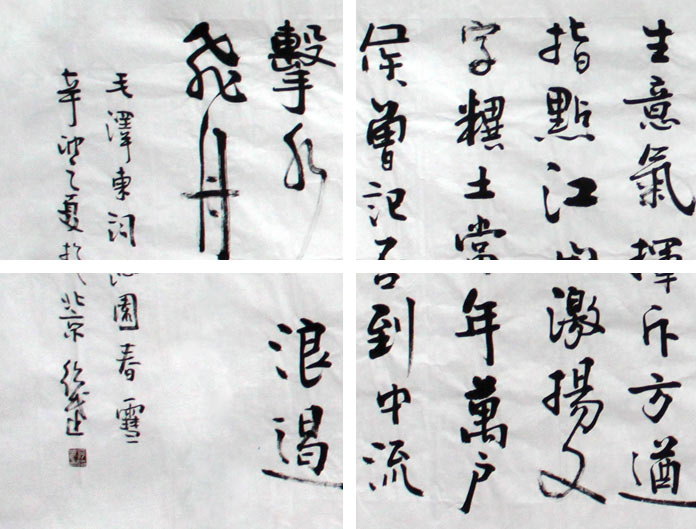 生意氣揮斥方遒
指點江山激揚文
字糞土當年萬戶
侯曾記否到中流
擊水浪遏
飛舟
毛澤東詞沁園春雪
辛卯之夏於北京